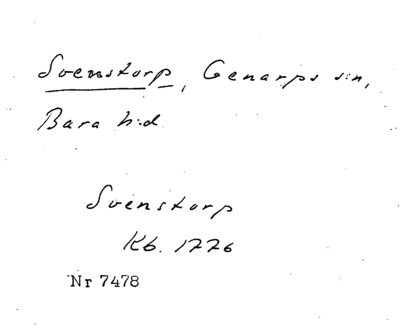 Svenstorp, Genarps s:n,
Bara h:d
Svenstorp
Kb. 1776
Nr 7478